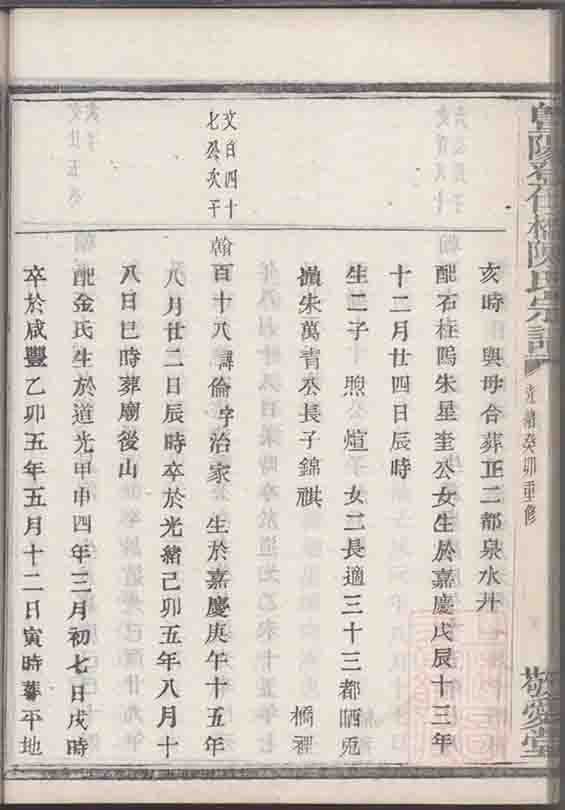 亥時 與母合葬正二都泉水丼
配石柱塢朱星奎公女生於嘉慶戊辰十三年
十二月廿四日辰時
生二子 煦 煊 女二長適三十三都
朱萬青公長子錦祺 橋裡
文百四十
七公次子
翰百十八諱倫字治家 生於嘉慶庚午十五年
八月廿二日辰時卒於光緒己卯五年八月十
八日巳時葬廟後山
配金氏生於道光甲申四年三月初七日戌時
卒於咸豐乙卯五年五月十二日寅時葬平地
陳氏宗譜
光緒癸卯重修
敬愛堂